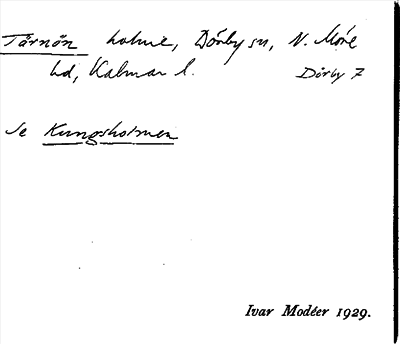 Tärnön holme, Dörby sn, N. Möre
hd, Kalmar l. Dörby 7
Se Kungsholmen
Ivar Modéer 1929.